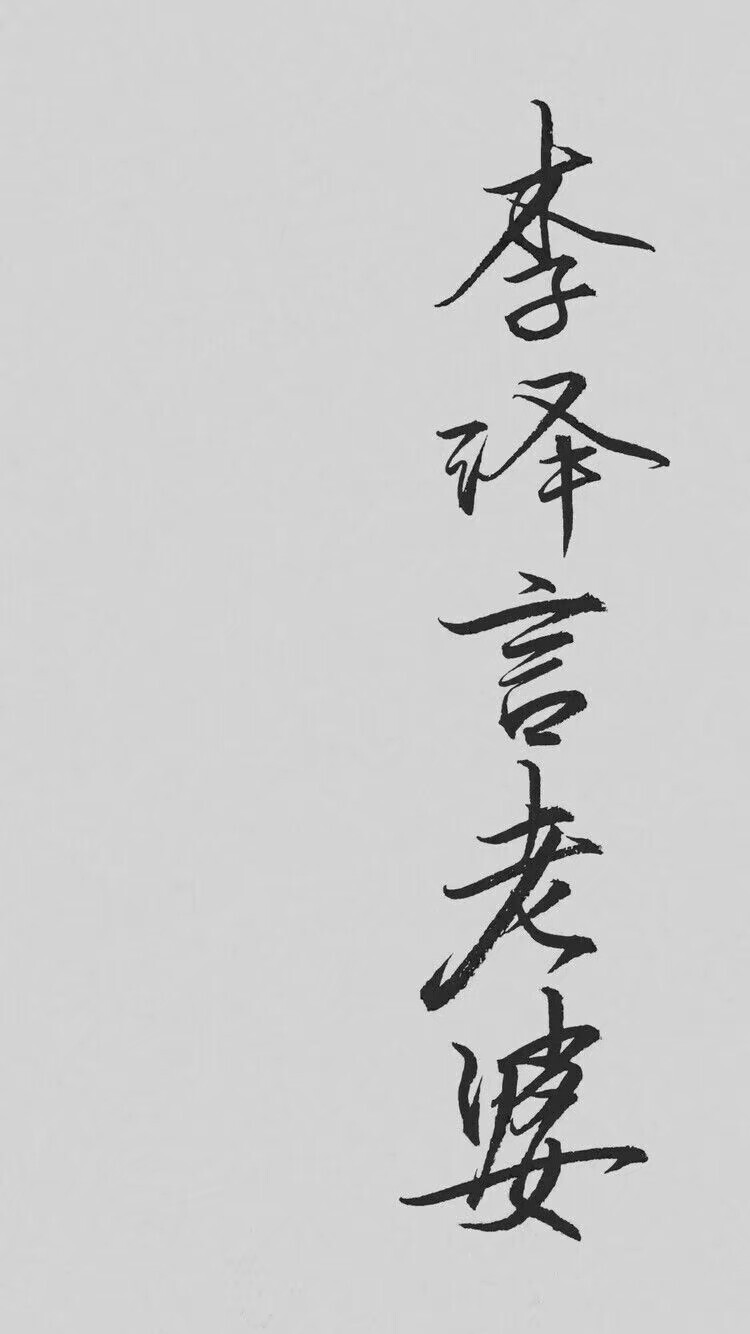 李泽言老婆